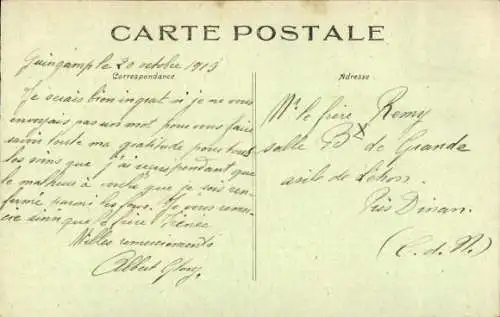 CARTE POSTALE
Guingamp le 20 octobre 1913
Correspondance
Adresse
Je serais bien ingrat si je ne vous
envoyais pas un mot pour vous faire
savoir toute ma gratitude pour tous
les soins que j'ai reçus pendant que
le malheur a voulu que je sois ren-
fermé parmi les fous. Je vous remer-
cie ainsi que le frère
Milles remerciements
Albert
Mr le frère Remy
salle Bx de Grande
asile de Léhon.
Près Dinan.
(C. d. N.)